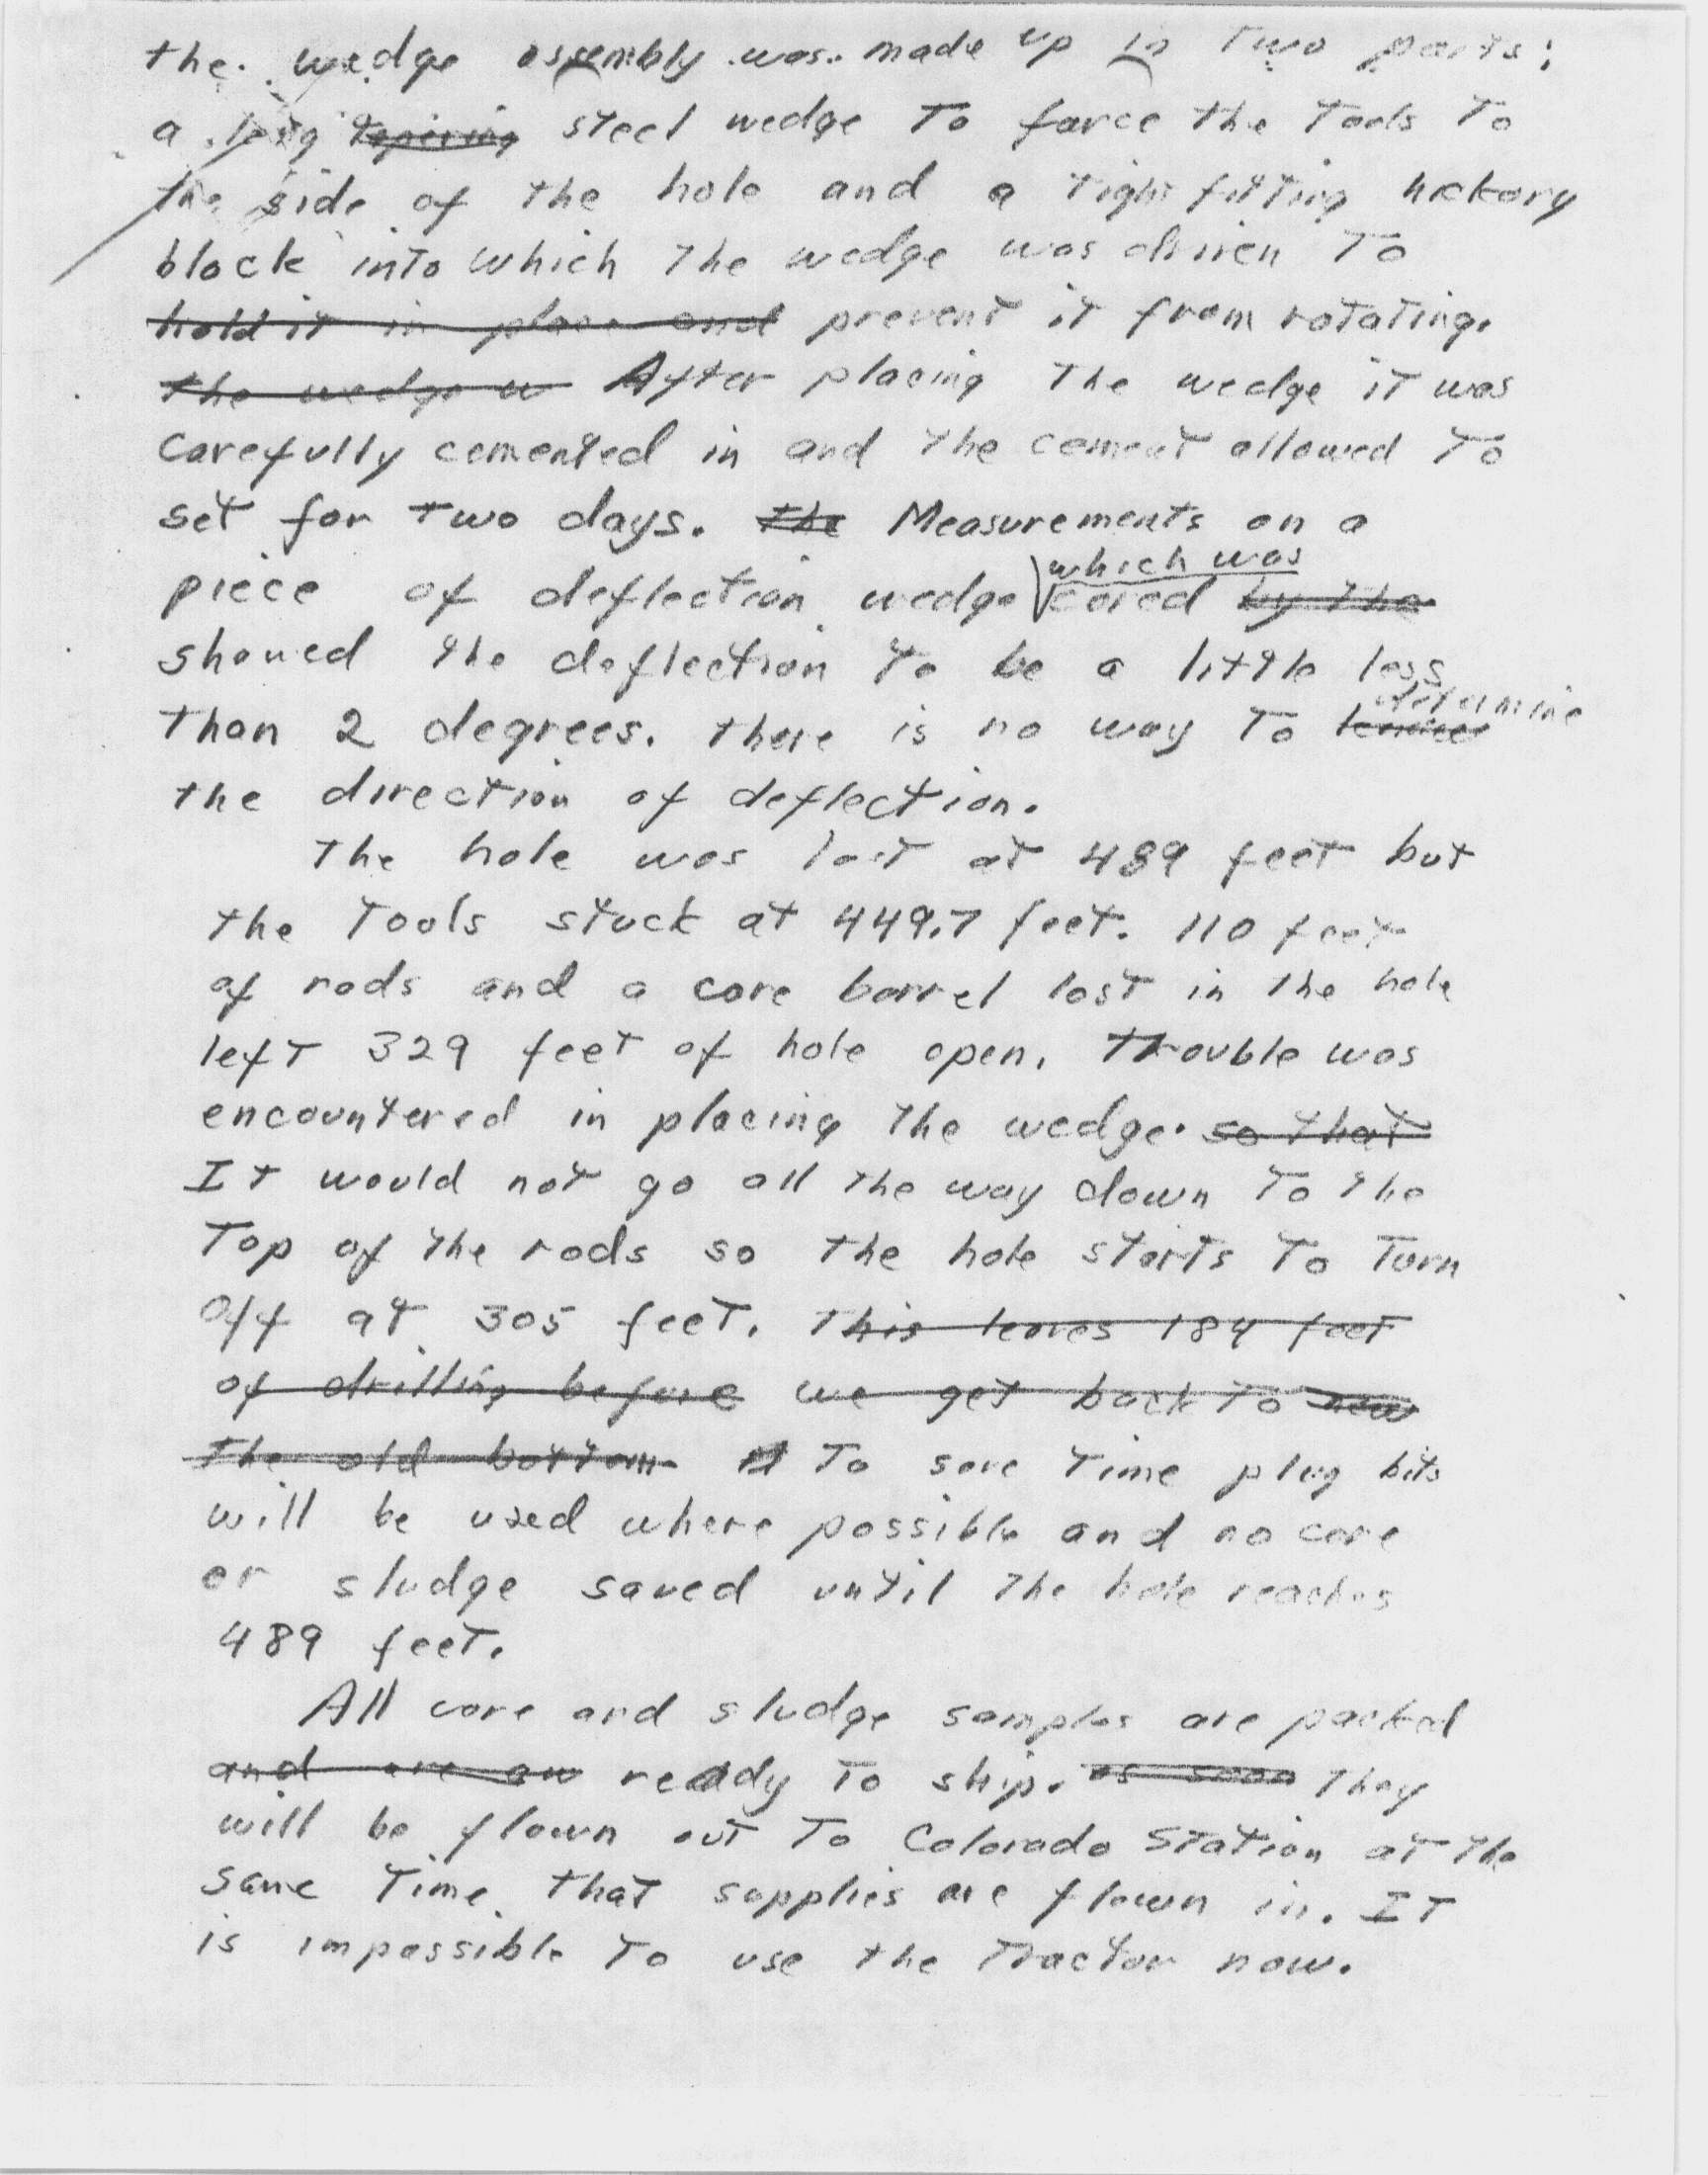 the wedge assembly was made up in two parts;
a long tapering steel wedge to force the tools to
the side of the hole and a tight fitting hickory
block into which the wedge was driven to
hold it in place and prevent it from rotating.
the wedge w After placing the wedge it was
carefully cemented in and the cement allowed to
set for two days. the Measurements on a
which was
piece of deflection wedge cored by the
showed the deflection to be a little less
determine
than 2 degrees. there is no way to know
the direction of deflection.
The hole was lost at 489 feet but
the tools stuck at 449.7 feet. 110 feet
of rods and a core barrel lost in the hole
left 329 feet of hole open. Trouble was
encountered in placing the wedge. so that
It would not go all the way down to the
top of the rods so the hole starts to turn
off at 305 feet. This leaves 184 feet
of drilling before we get back to new
the old bottom To save time plug bits
will be used where possible and no core
or sludge saved until the hole reaches
489 feet.
All core and sludge samples are packed
and are aw ready to ship. as soon They
will be flown out to Colorado Station at the
same time that supplies are flown in. It
is impossible to use the tractor now.